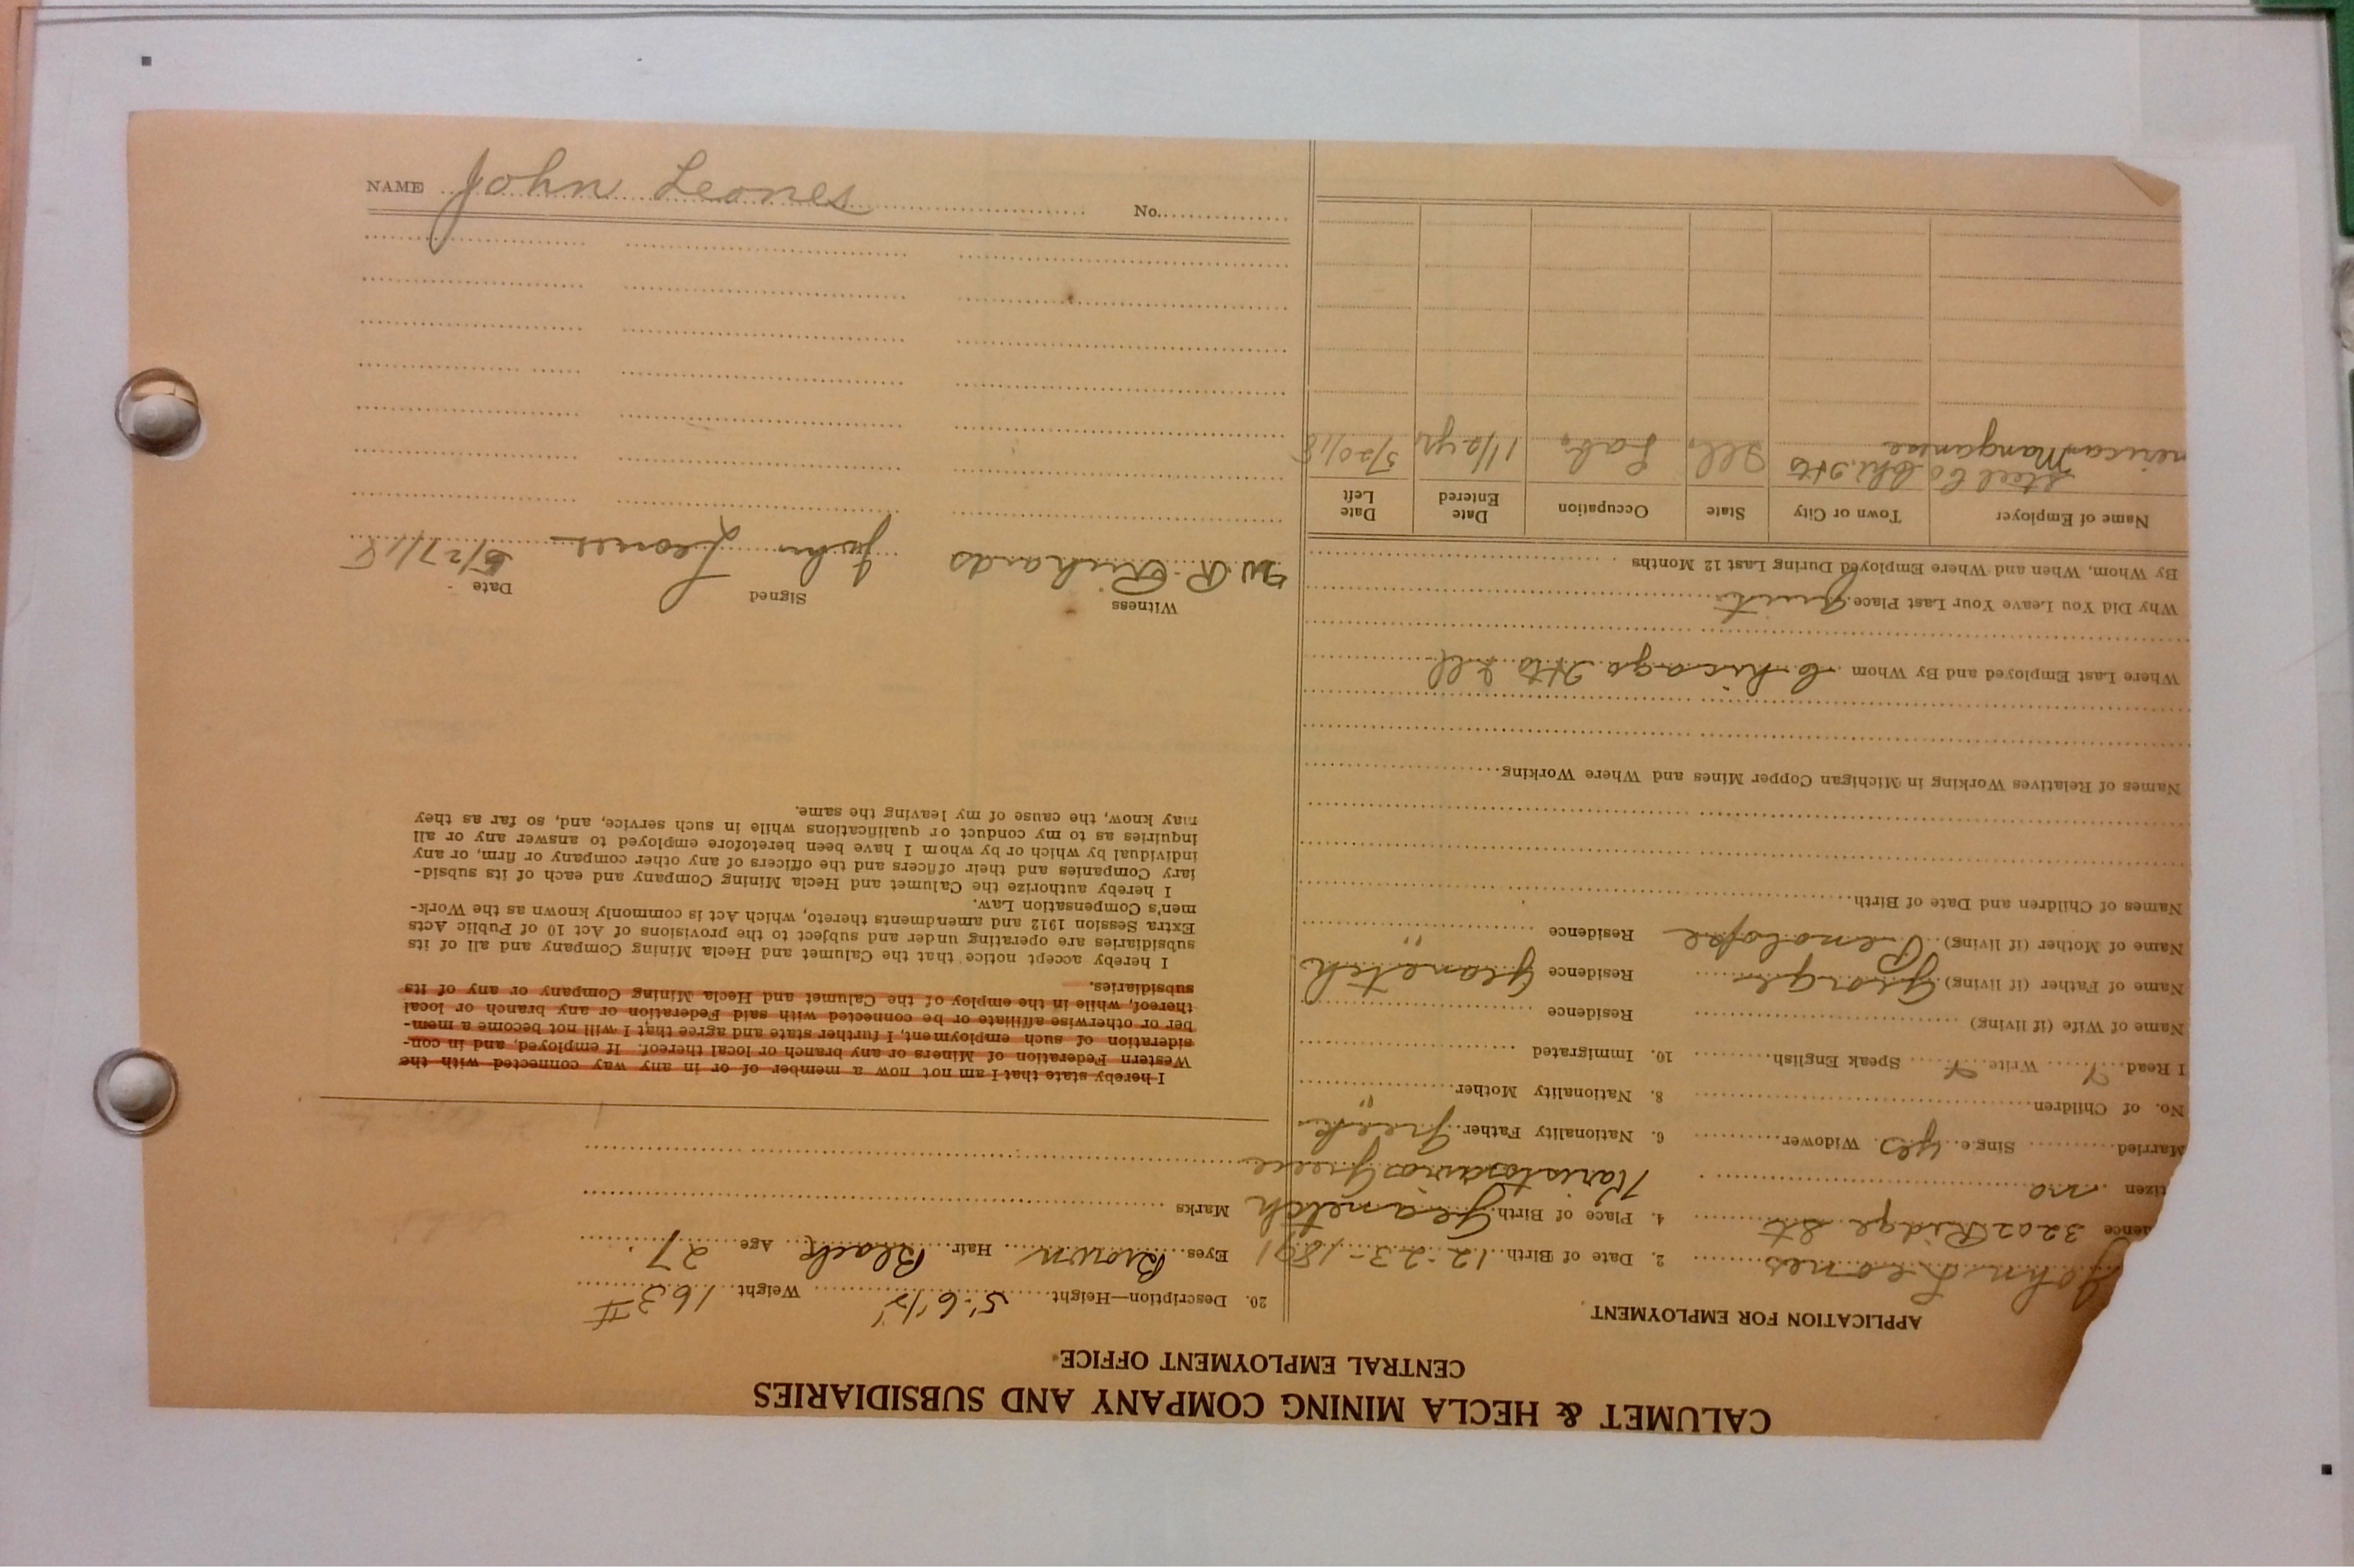 CALUMET & HECLA MINING COMPANY AND SUBSIDIARIES
CENTRAL EMPLOYMENT OFFICE
APPLICATION FOR EMPLOYMENT
John Leones 2. Date of Birth 12-23-1891
ence 3202 Ridge St 4. Place of Birth
tizen no Greece
Married Single yes Widower 6. Nationality Father Greek
No. of Children 8. Nationality Mother "
I Read Y Write Y Speak English 10. Immigrated
Name of Wife (if living) Residence
Name of Father (if living) George Residence
Name of Mother (if living) Penolope Residence "
Names of Children and Date of Birth
Names of Relatives Working in Michigan Copper Mines and Where Working
Where Last Employed and By Whom Chicago Hts Ill
Why Did You Leave Your Last Place quit
By Whom, When and Where Employed During Last 12 Months
Name of Employer Town or City State Occupation Date Entered Date Left
Steel Co Chi. Hts Ill. Lab. 1 1/2 yr 5/20/18
merican Manganese
20. Description—Height 5'-6 1/2" Weight 163 #
Eyes Brown Hair Black Age 27
Marks
I hereby state that I am not now a member of or in any way connected with the
Western Federation of Miners or any branch or local thereof. If employed, and in con-
sideration of such employment, I further state and agree that I will not become a mem-
ber or otherwise affiliate or be connected with said Federation or any branch or local
thereof, while in the employ of the Calumet and Hecla Mining Company or any of its
subsidiaries.
I hereby accept notice that the Calumet and Hecla Mining Company and all of its
subsidiaries are operating under and subject to the provisions of Act 10 of Public Acts
Extra Session 1912 and amendments thereto, which Act is commonly known as the Work-
men's Compensation Law.
I hereby authorize the Calumet and Hecla Mining Company and each of its subsid-
iary Companies and their officers and the officers of any other company or firm, or any
individual by which or by whom I have been heretofore employed to answer any or all
inquiries as to my conduct or qualifications while in such service, and, so far as they
may know, the cause of my leaving the same.
Witness Signed Date
W R Richards John Leones 5/27/18
NAME John Leones No.